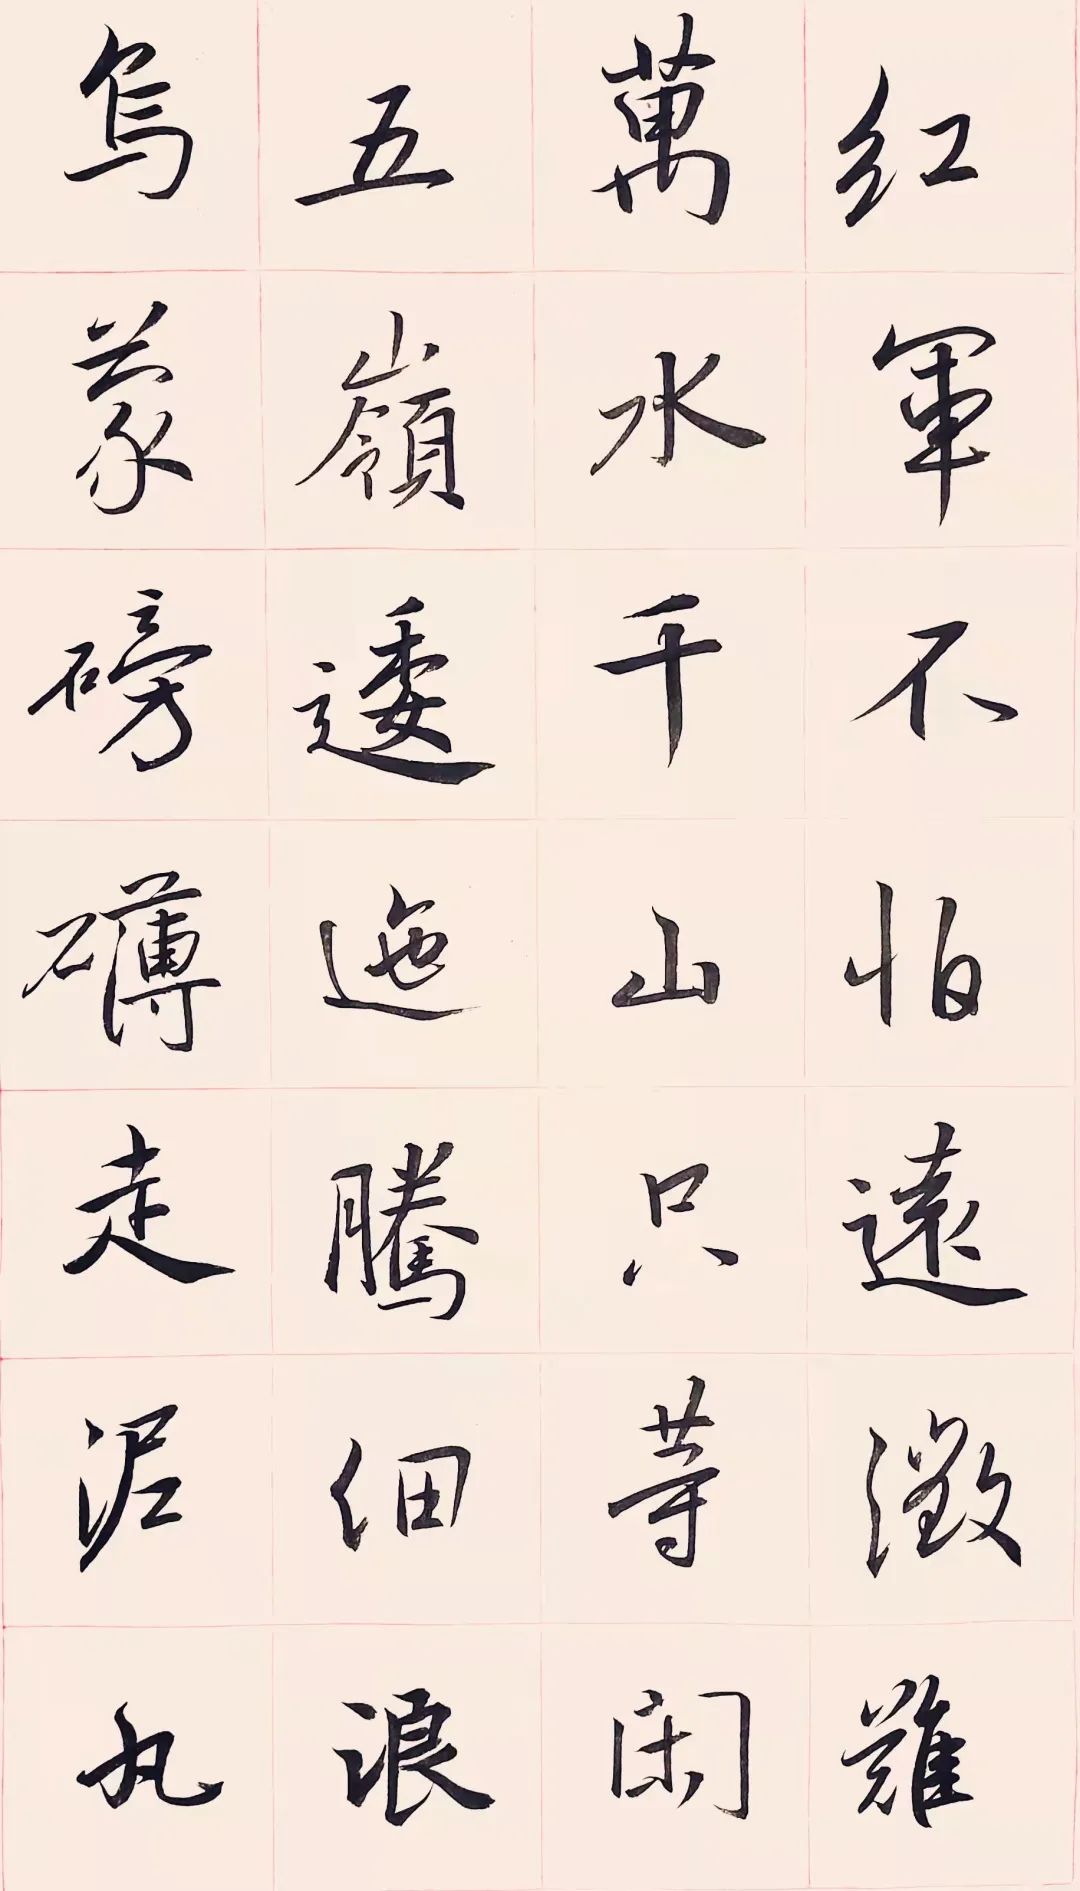 红軍不怕遠徵難
萬水千山只等閑
五嶺逶迤騰细浪
烏蒙磅礴走泥丸